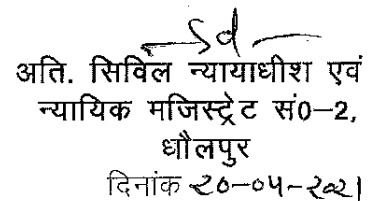 Sd
अति. सिविल न्यायाधीश एवं
न्यायिक मजिस्ट्रेट सं0–2,
धौलपुर
दिनांक २०-०५-२०२१